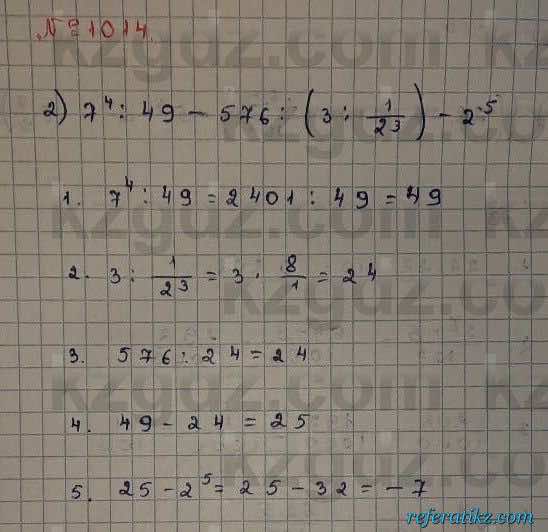 № 1014.
2) 7⁴ : 49 - 576 : (3 : 1/2³) - 2⁵
1. 7⁴ : 49 = 2401 : 49 = 49
2. 3 : 1/2³ = 3 · 8/1 = 24
3. 576 : 24 = 24
4. 49 - 24 = 25
5. 25 - 2⁵ = 25 - 32 = -7
kzgdz.com
referatikz.com